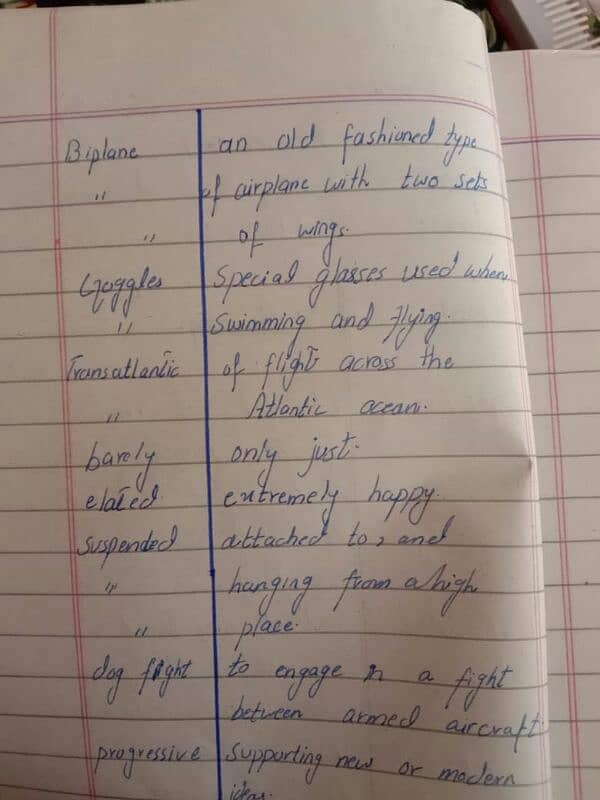 Biplane an old fashioned type
" of airplane with two sets
" of wings.
Goggles Special glasses used when
" Swimming and flying.
Transatlantic of flight across the
" Atlantic ocean.
barely only just.
elated. extremely happy.
suspended attached to, and
" hanging from a high
" place.
dog fight to engage in a fight
between armed aircraft
progressive supporting new or modern
ideas.